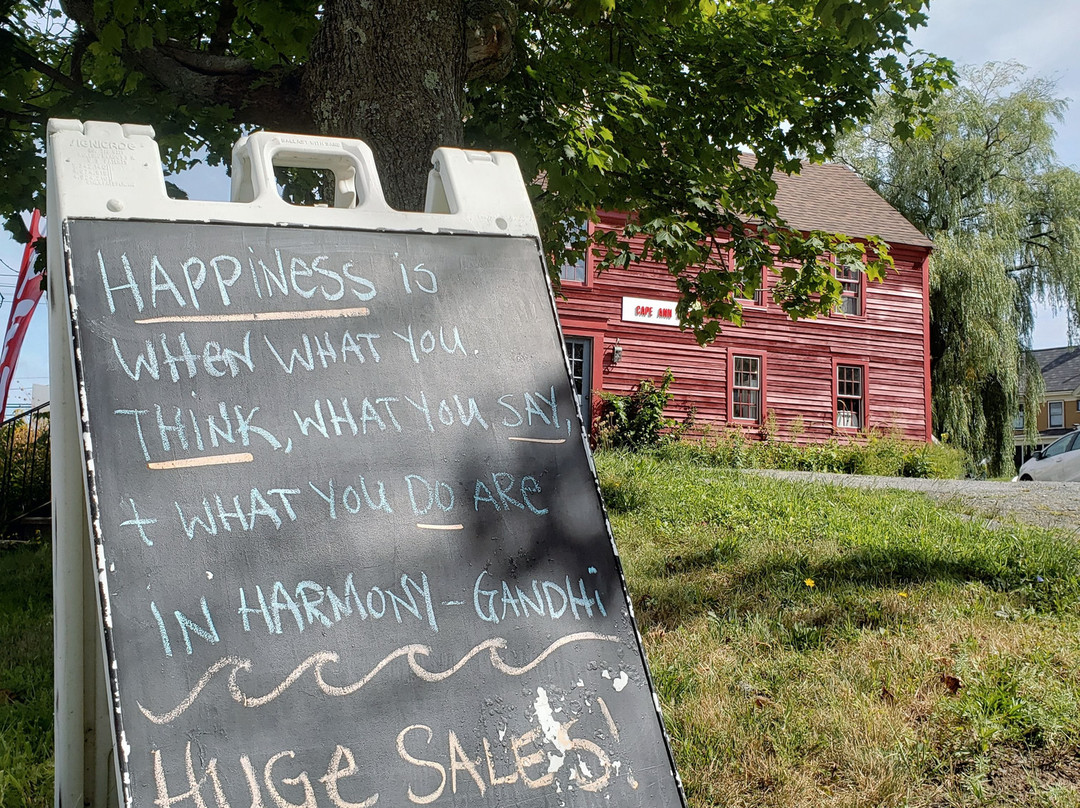 SIGNICADE
HAPPiNESS iS
WHEN WHAT YOU
THiNK, WHAT YOU SAY,
+ WHAT YOU DO ARE
IN HARMONY - GANDHi
HUGE SALES!
CAPE ANN